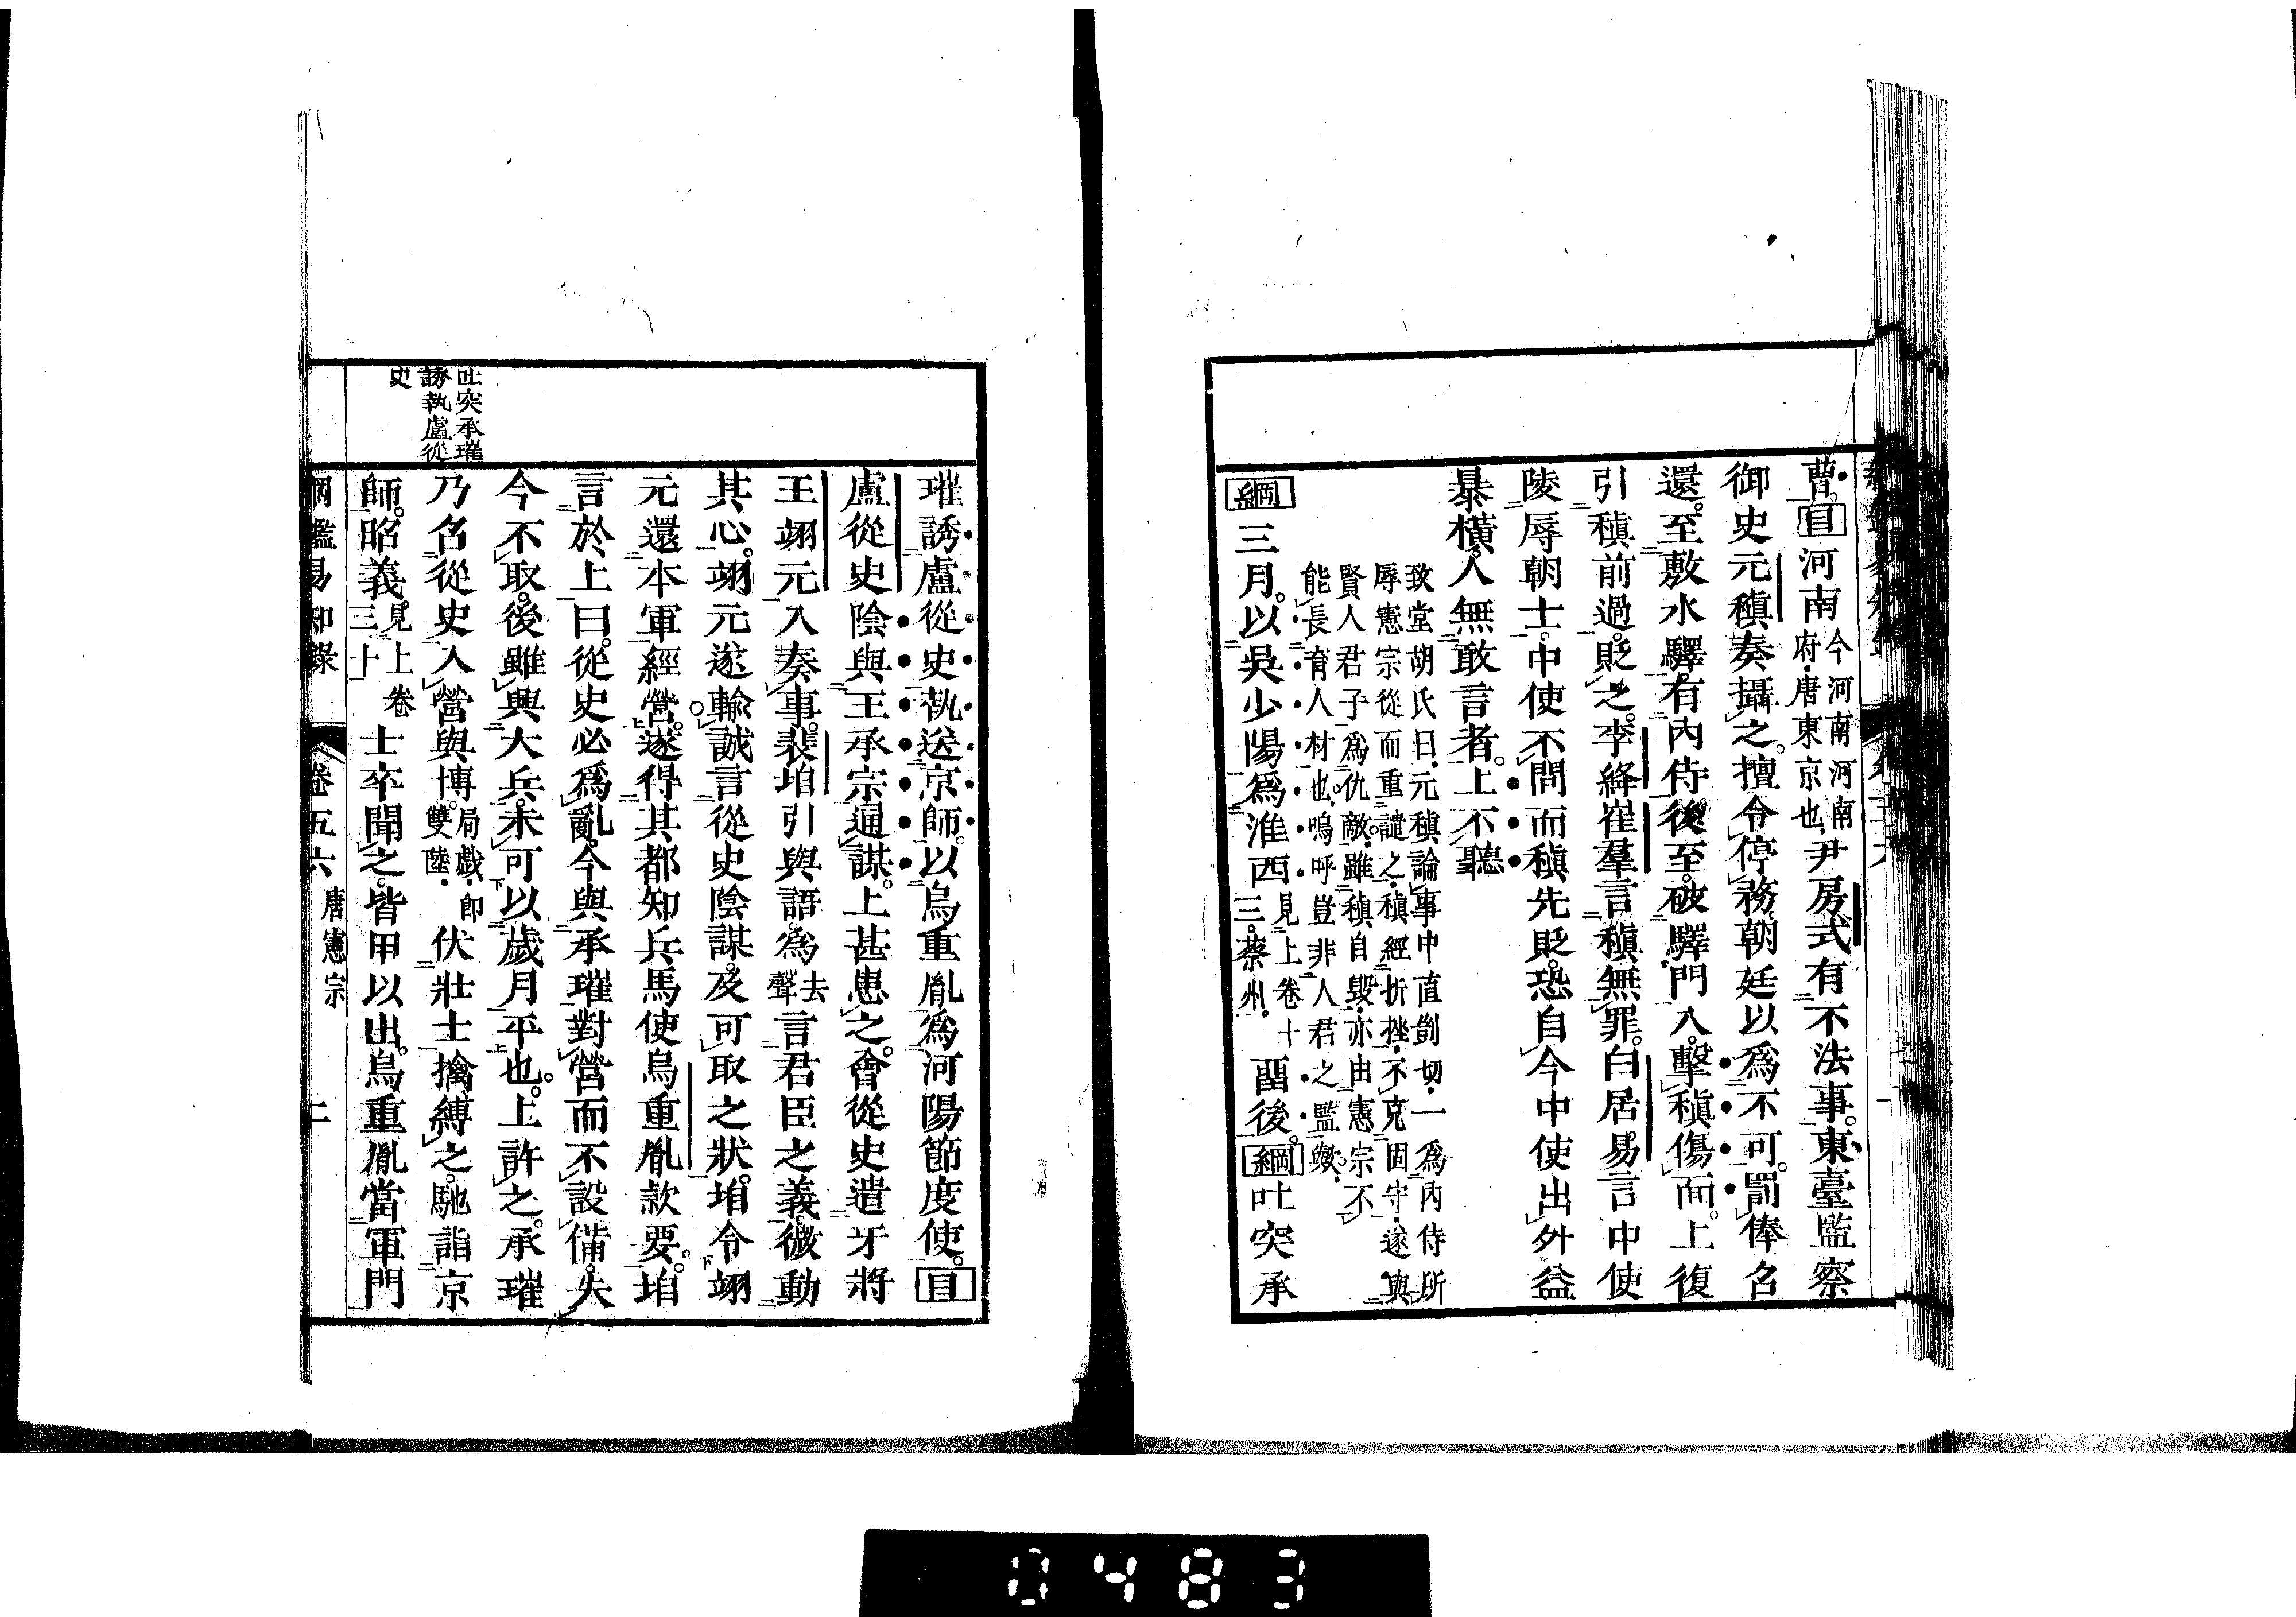 曹。目河南今河南河南府。唐東京也。尹房式有不法事。東臺監察
御史元稹奏攝之。擅令停務。朝廷以爲不可。罰俸召
還。至敷水驛。有內侍後至。破驛門入。擊稹傷面。上復
引稹前過。貶之。李絳崔羣言稹無罪。白居易言中使
陵辱朝士。中使不問而稹先貶。恐自今中使出外益
暴橫。人無敢言者。上不聽
致堂胡氏曰。元稹論事中直剴切。一爲內侍所
辱憲宗從而重譴之。稹經折挫。不克固守。遂與
賢人君子爲仇敵。雖稹自毀。亦由憲宗不
能長育人材也。嗚呼豈非人君之監歟。
綱三月。以吳少陽爲淮西見上卷十三。蔡州。畱後。綱吐突承
璀誘盧從史執送京師。以烏重胤爲河陽節度使。目
盧從史陰與王承宗通謀。上甚患之。會從史遣牙將
王翊元入奏事。裴垍引與語。爲去聲言君臣之義。微動
其心。翊元遂輸誠。言從史陰謀。及可取之狀。垍令翊
元還本軍經營。遂得其都知兵馬使烏重胤款要。垍
言於上曰。從史必爲亂。今與承璀對營而不設備。失
今不取。後雖興大兵。未可以歲月平也。上許之。承璀
乃召從史入營與博。局戲。卽雙陸。伏壯士擒縛之。馳詣京
師。昭義。見上卷三十士卒聞之。皆甲以出。烏重胤當軍門
吐突承璀
誘執盧從
史
綱鑑易知錄 卷五六 唐憲宗 二
0483